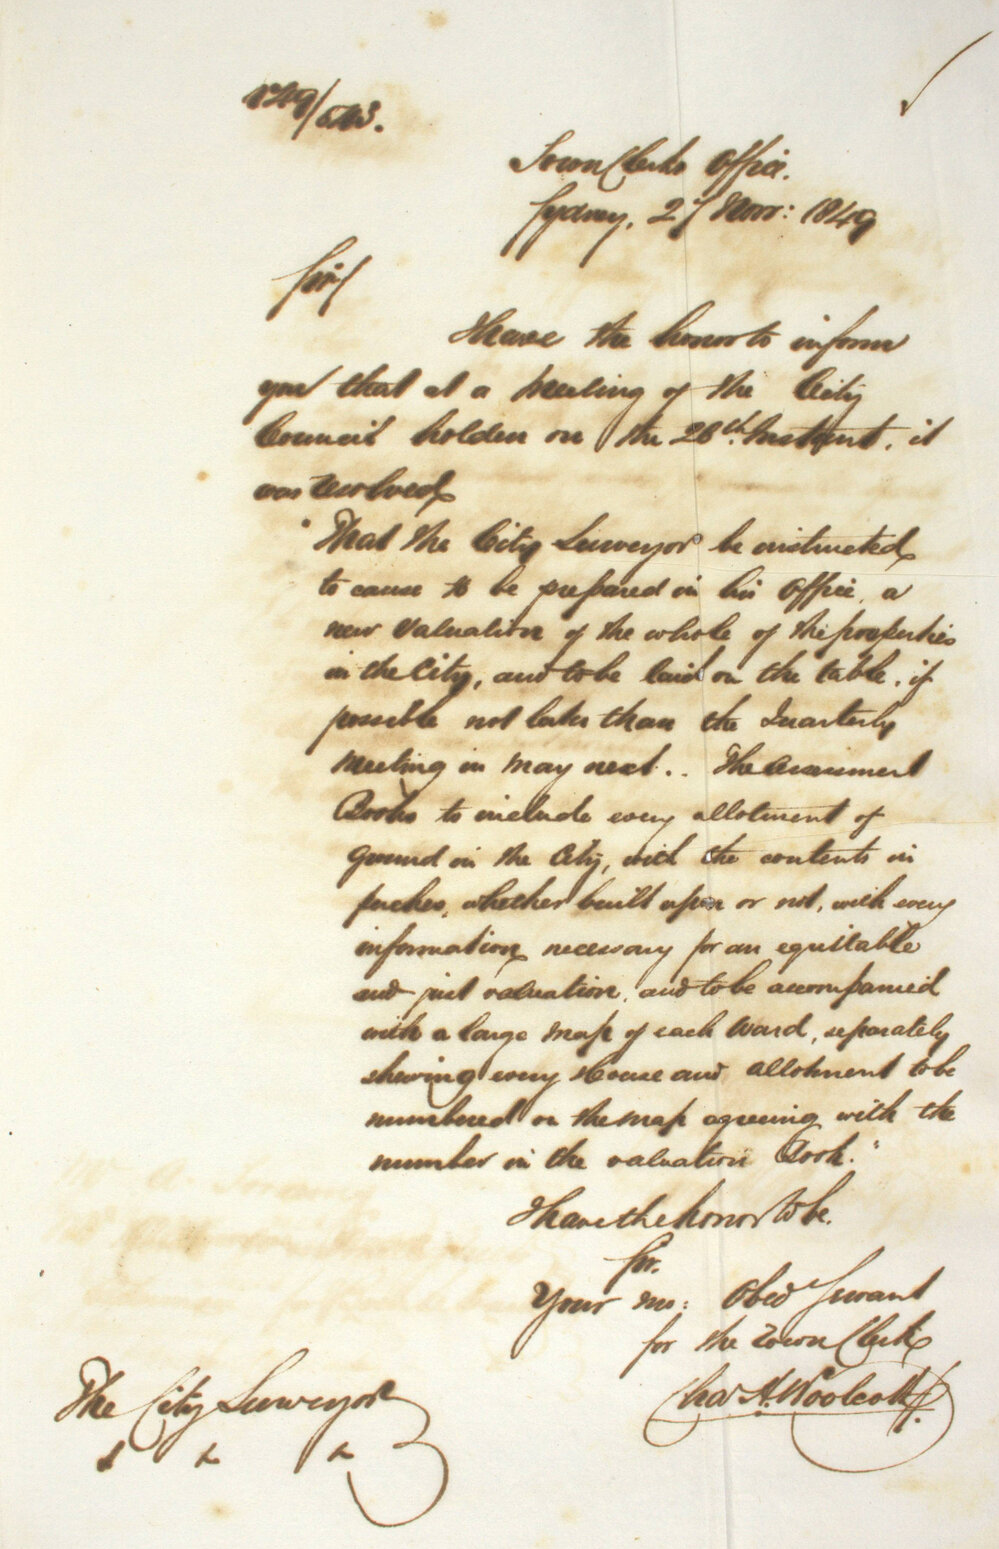 1849/643.
Town Clerks Office.
Sydney, 27 Novr: 1849
Sir,
I have the honor to inform
you that at a Meeting of the City
Council holden on the 26th. Instant, it
was resolved
"That the City Surveyor be instructed
to cause to be prepared in his Office, a
new Valuation of the whole of the properties
in the City, and to be laid on the table, if
possible not later than the Quarterly
Meeting in May next.. The Assessment
Books to include every allotment of
ground in the City, with the contents in
perches, whether built upon or not, with every
information necessary for an equitable
and just valuation, and to be accompanied
with a large Map of each Ward, separately
shewing every House and allotment to be
numbered on the map agreeing with the
number in the valuation Book."
I have the honor to be.
Sir.
Your mo: Obed Servant
for the Town Clerk
Chas H. Woolcott
The City Surveyor